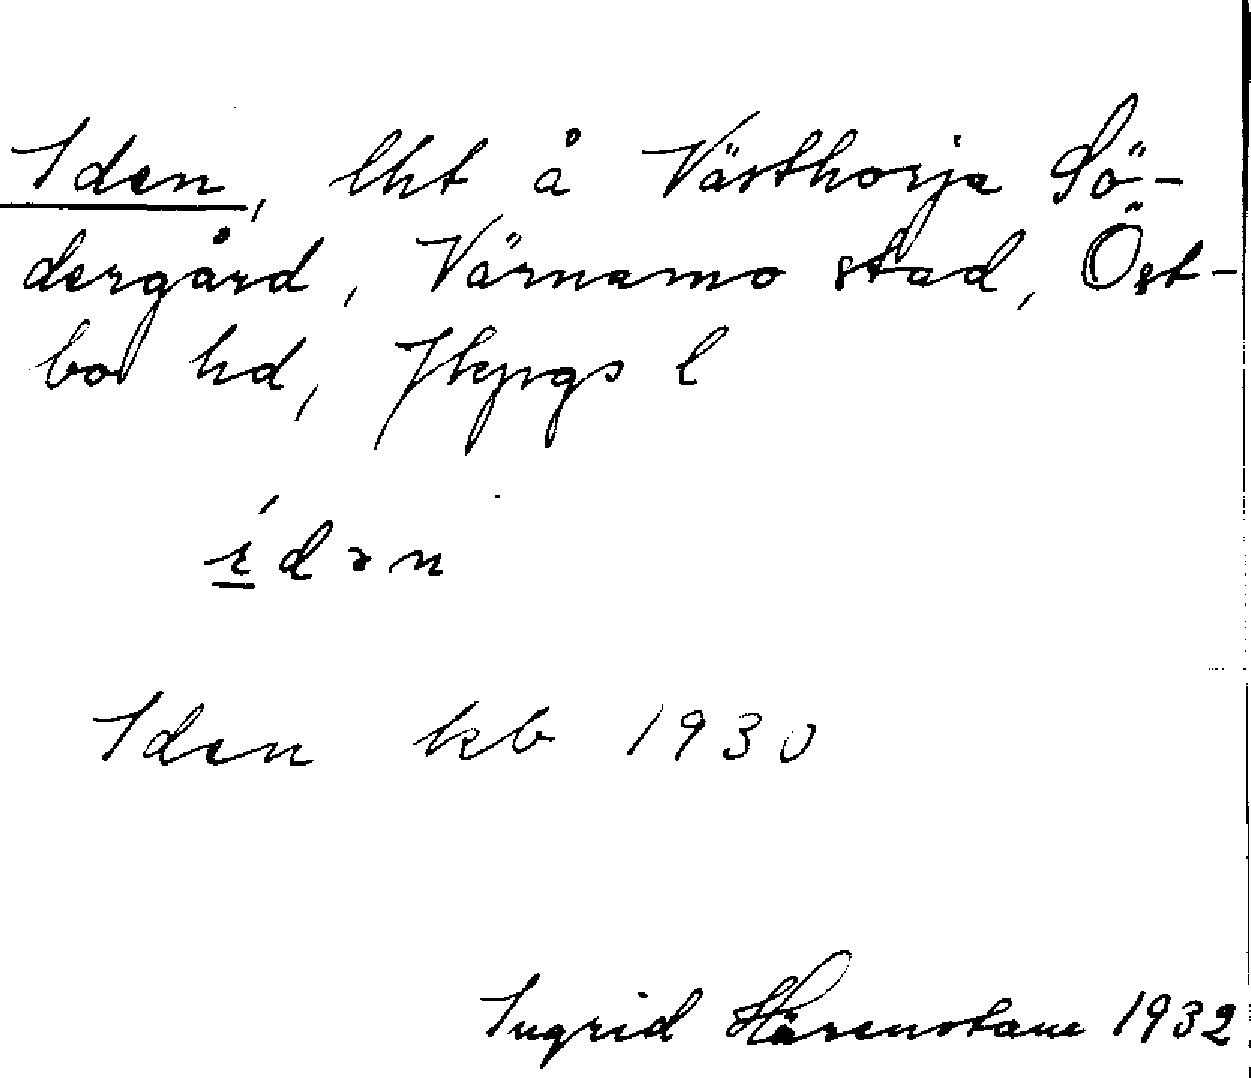 Iden, lht å Västhorja Sö-
dergård, Värnamo stad, Öst-
bo hd, Jkpgs l
í̱dən
Iden kb 1930
Ingrid 1932